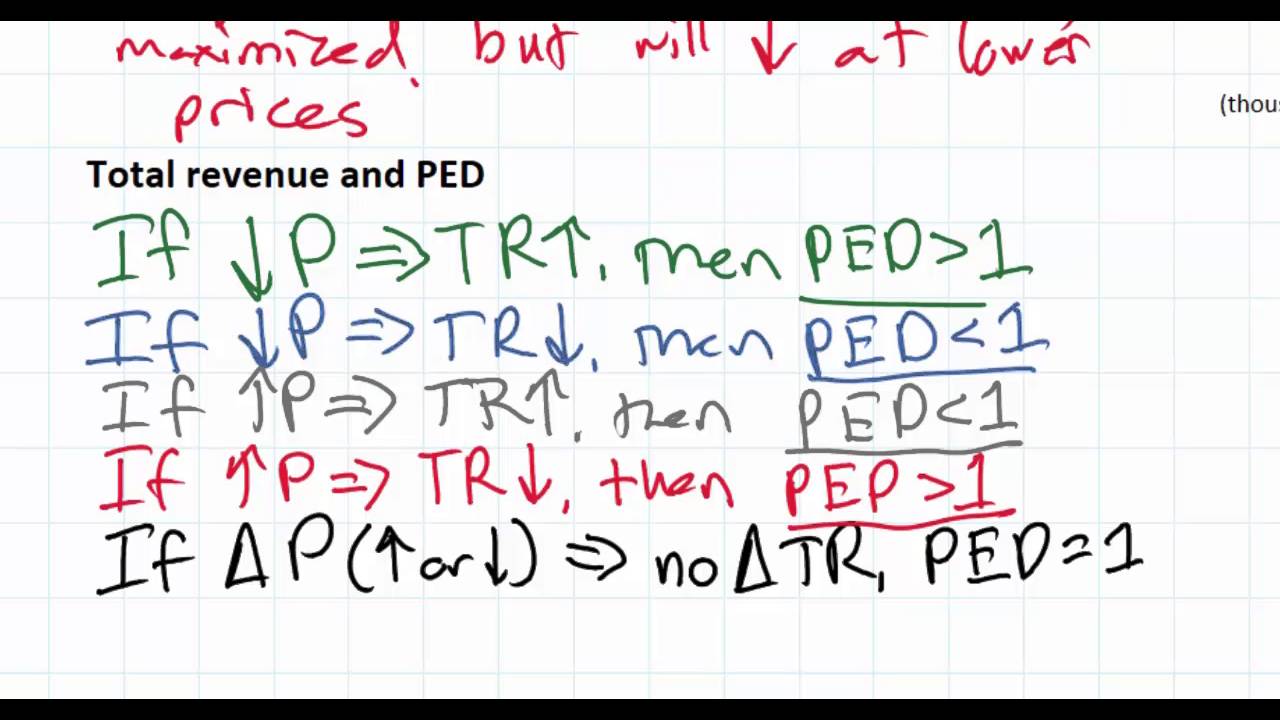 maximized, but will ↓ at lower
prices
(thous
Total revenue and PED
If ↓P ⇒ TR↑, then PED>1
If ↓P ⇒ TR↓, then PED<1
If ↑P ⇒ TR↑, then PED<1
If ↑P ⇒ TR↓, then PED>1
If ΔP(↑or↓) ⇒ no ΔTR, PED=1